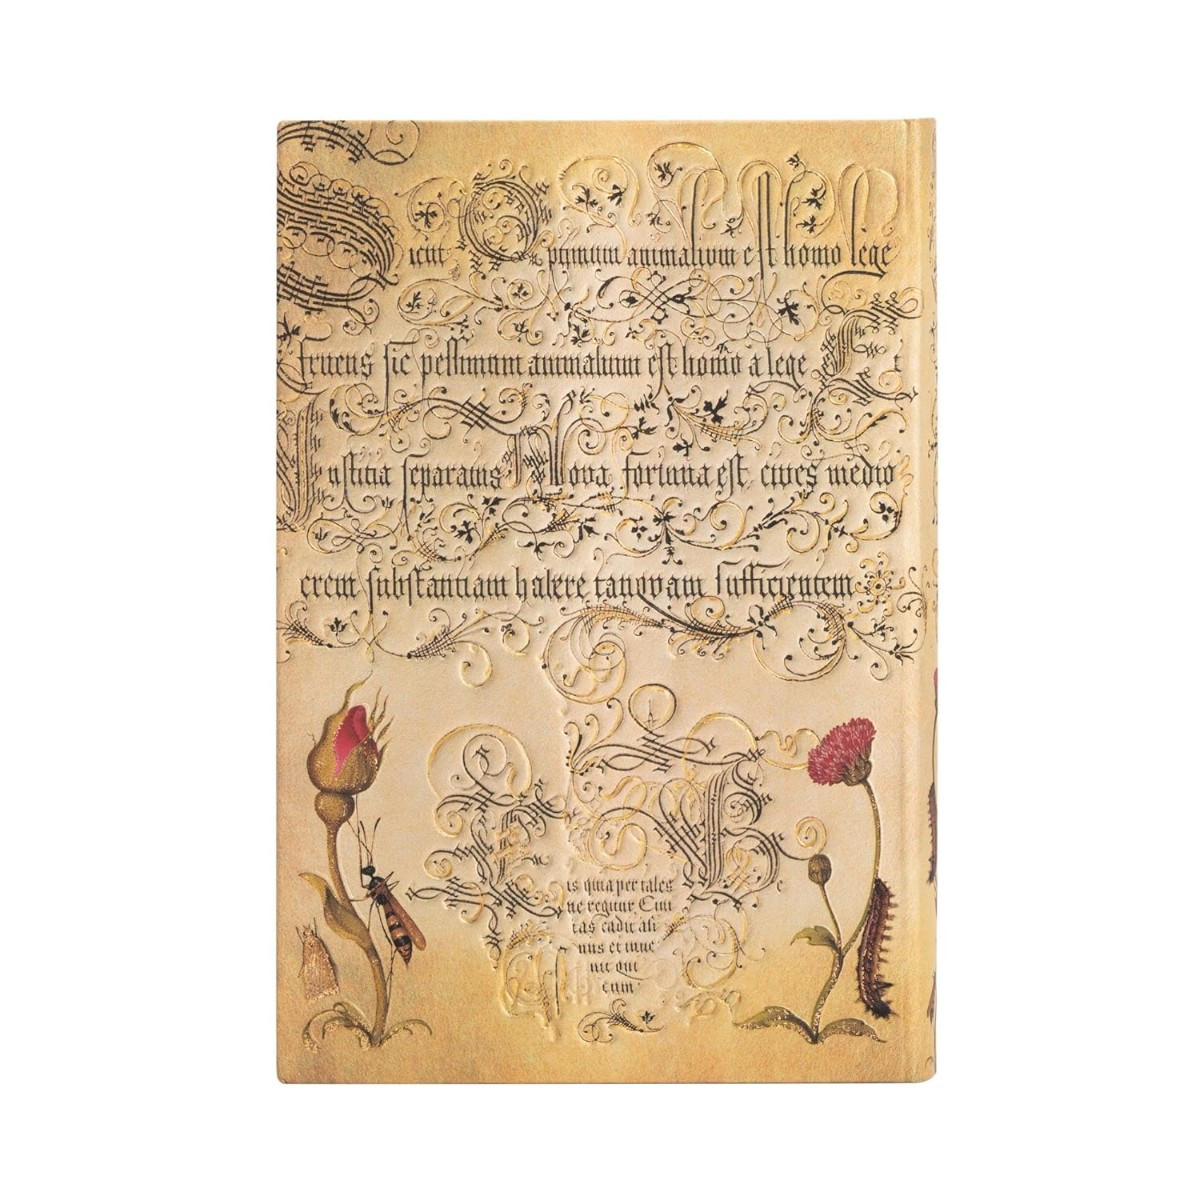 Sicut Optimum animalium est homo lege
fruens sic pessimum animalium est homo a lege Et
Iustitia separatus fortuna est cives medio
crem substantiam habere tanquam sufficientem
is quia per tales Be
ne regitur Civi
tas cadit asi
nus et inve
nit qui
eum